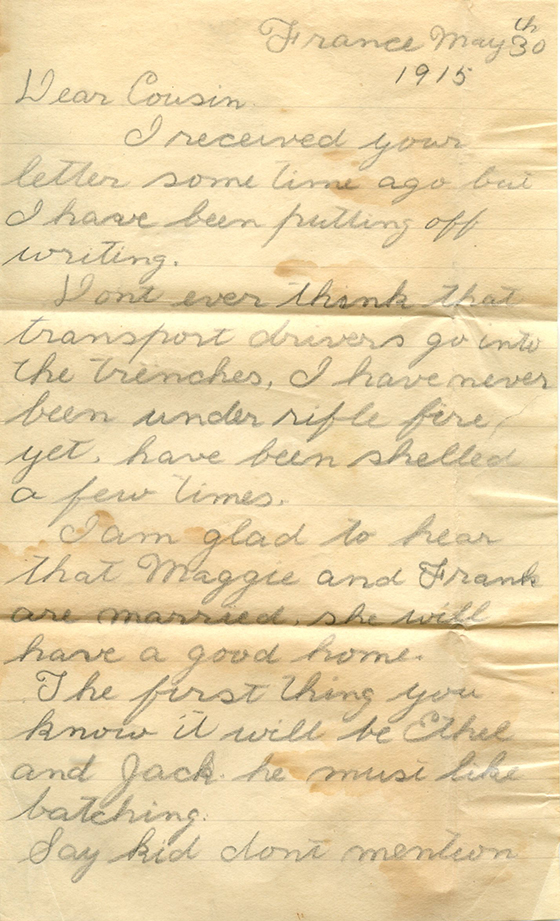 France May 30th
1915
Dear Cousin.
I received your
letter some time ago but
I have been putting off
writing.
Dont ever think that
transport drivers go into
the trenches, I have never
been under rifle fire
yet, have been shelled
a few times.
I am glad to hear
that Maggie and Frank
are married, she will
have a good home.
The first thing you
know it will be Ethel
and Jack. he must like
batching.
Say kid dont mention